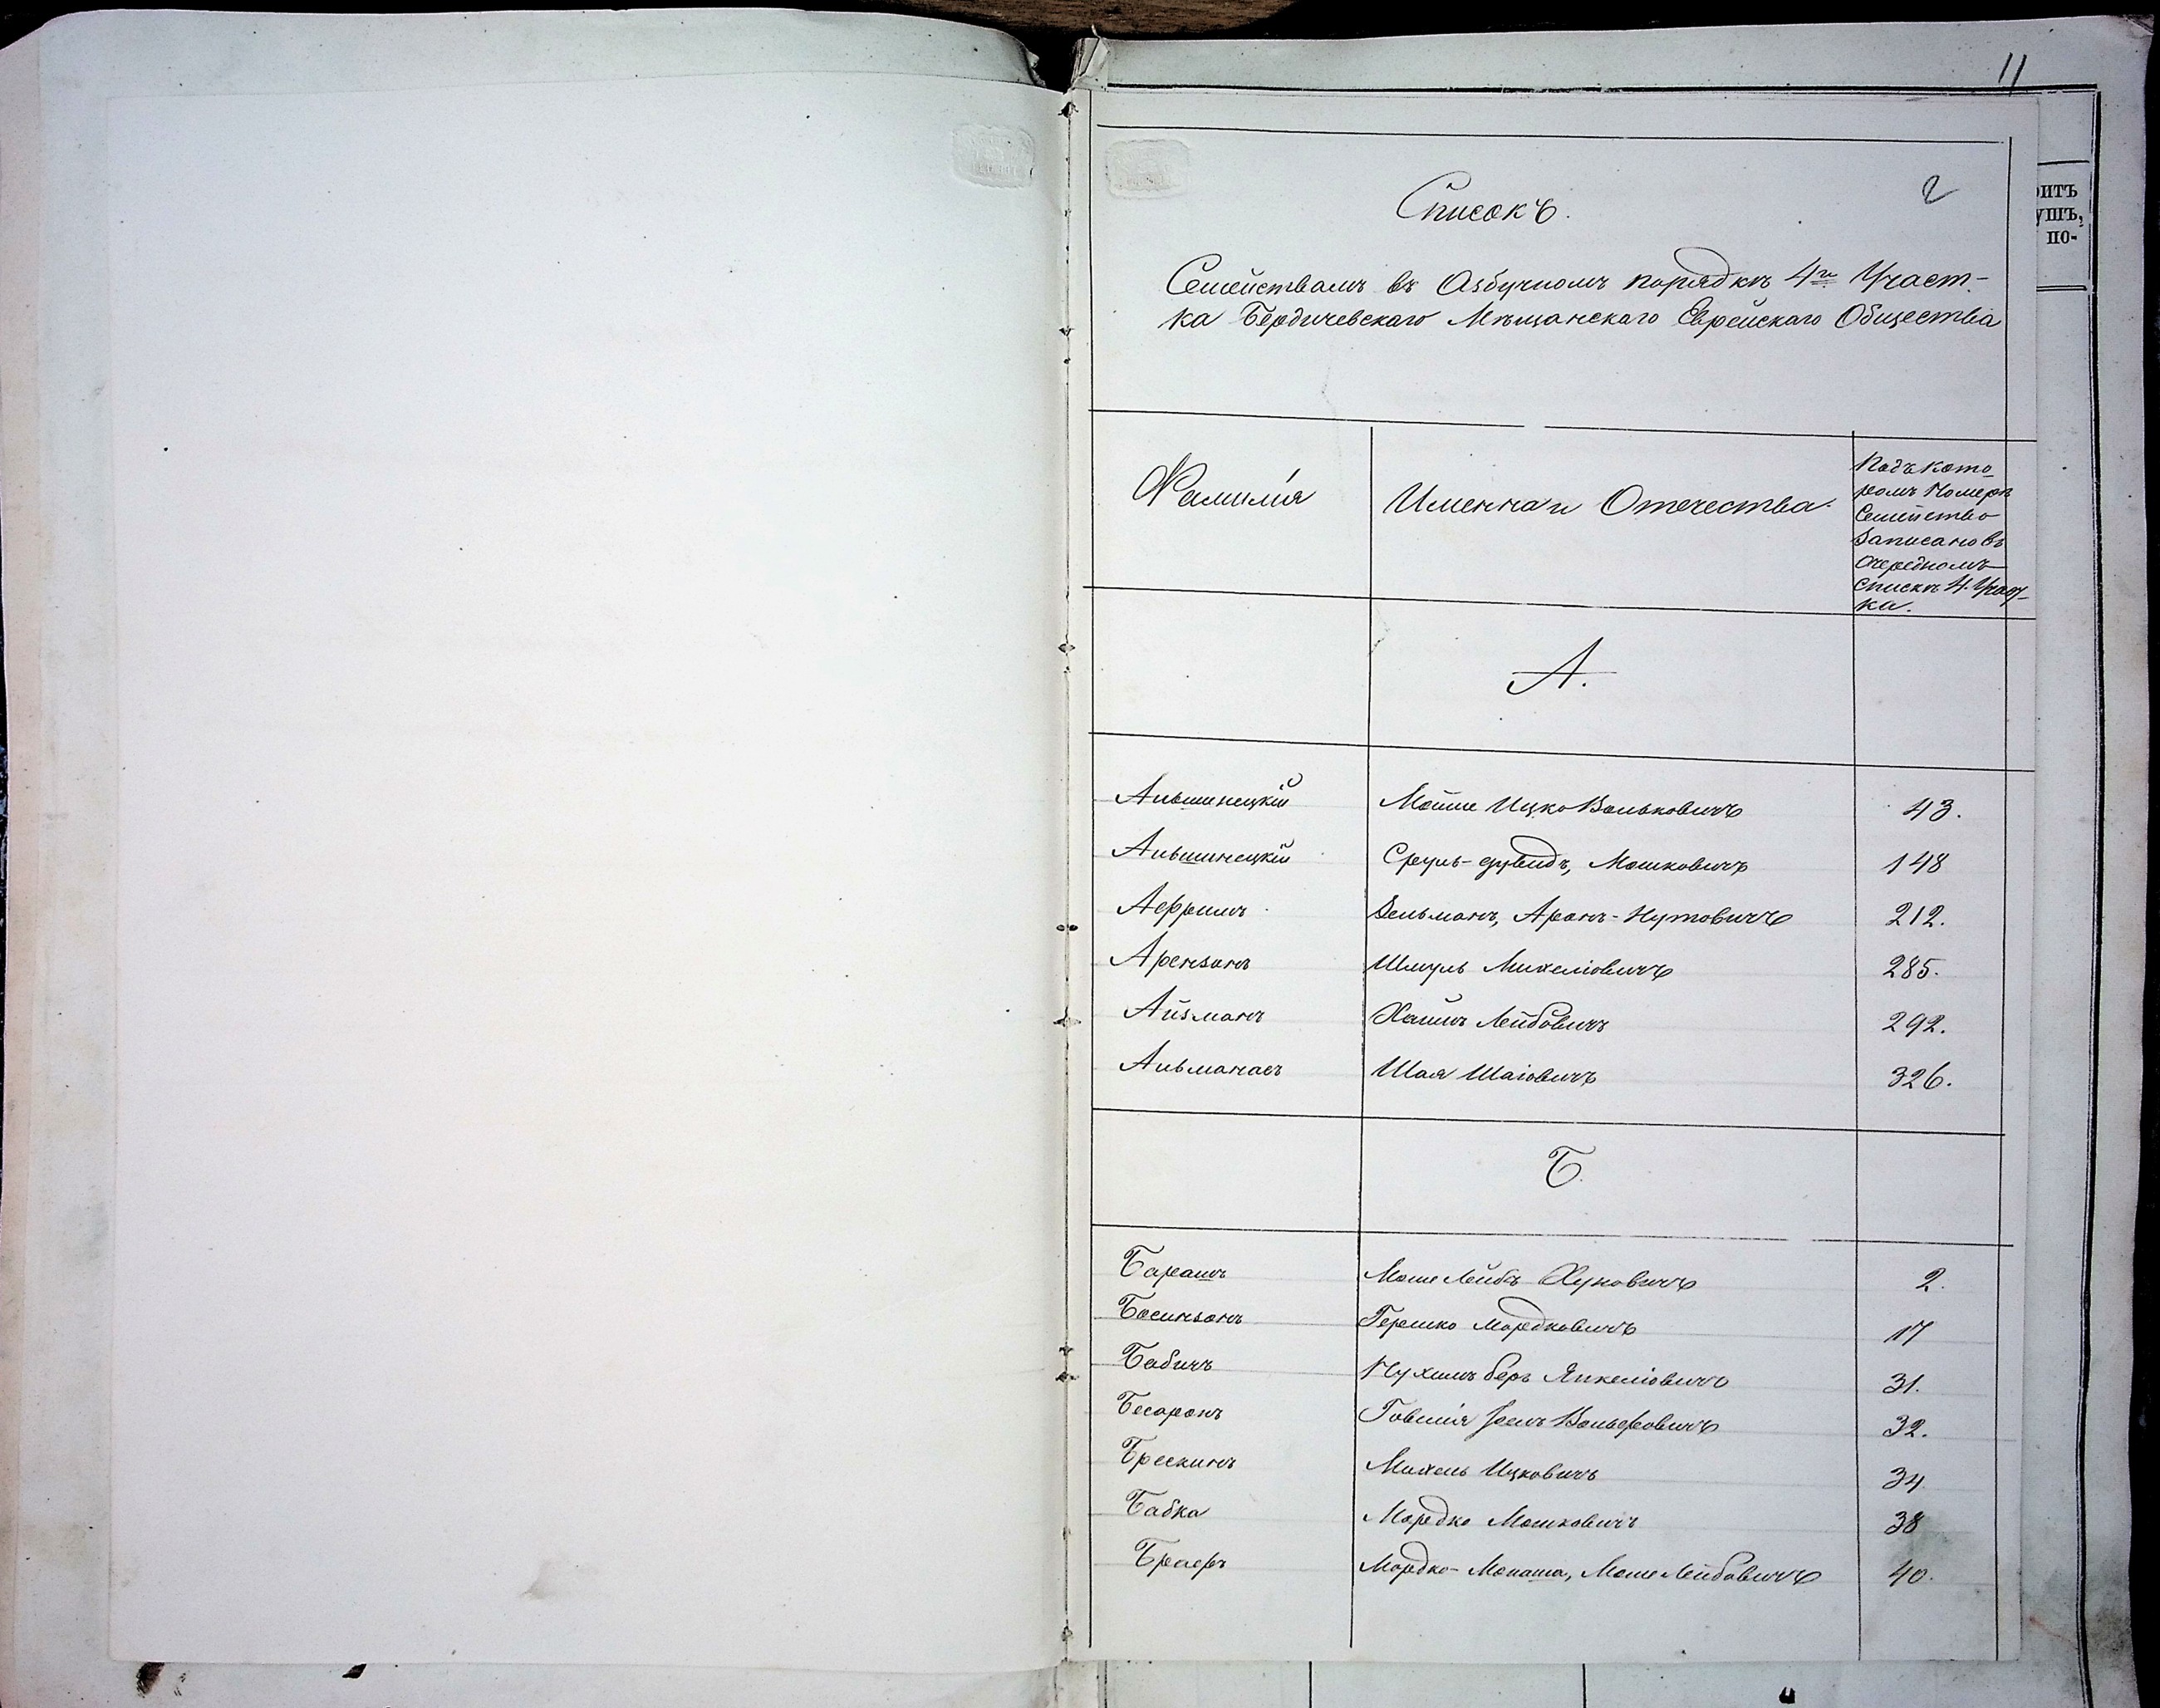 11
2
Списокъ.
Семействамъ въ Азбучномъ порядкѣ 4го Участ-
ка Бердичевскаго Мѣщанскаго Еврейскаго Общества
Фамилія
Именна и Отечества.
Подъ кото
ромъ Номерѣ
Семейство
записано въ
очередномъ
спискѣ 4. Учас
ка.
А.
Альшинецкій Мойше Ицко Вольковичъ 43.
Альшинецкій Сруль-дувидъ, Мошковичъ 148
Аефримъ Зельманъ, Аронъ-Нутовичъ 212.
Арензонъ Шмуль Михеліовичъ 285.
Айзманъ Хаимъ Лейбовичъ 292.
Альманасъ Шая Шаіовичъ 326.
Б.
Барашъ Моше Лейбъ Хуновичъ 2.
Босинзонъ Гершко Мордковичъ 17
Бабичъ Нухимъ беръ Янкеліовичъ 31.
Бесаронъ Говшія Іоель Вольфовичъ 32.
Брескинъ Михель Ицковичъ 34
Бабка Мордко Мошковичъ 38
Браеръ Мордко-Монаша, Моше Лейбовичъ 40.
итъ
ушъ,
по-